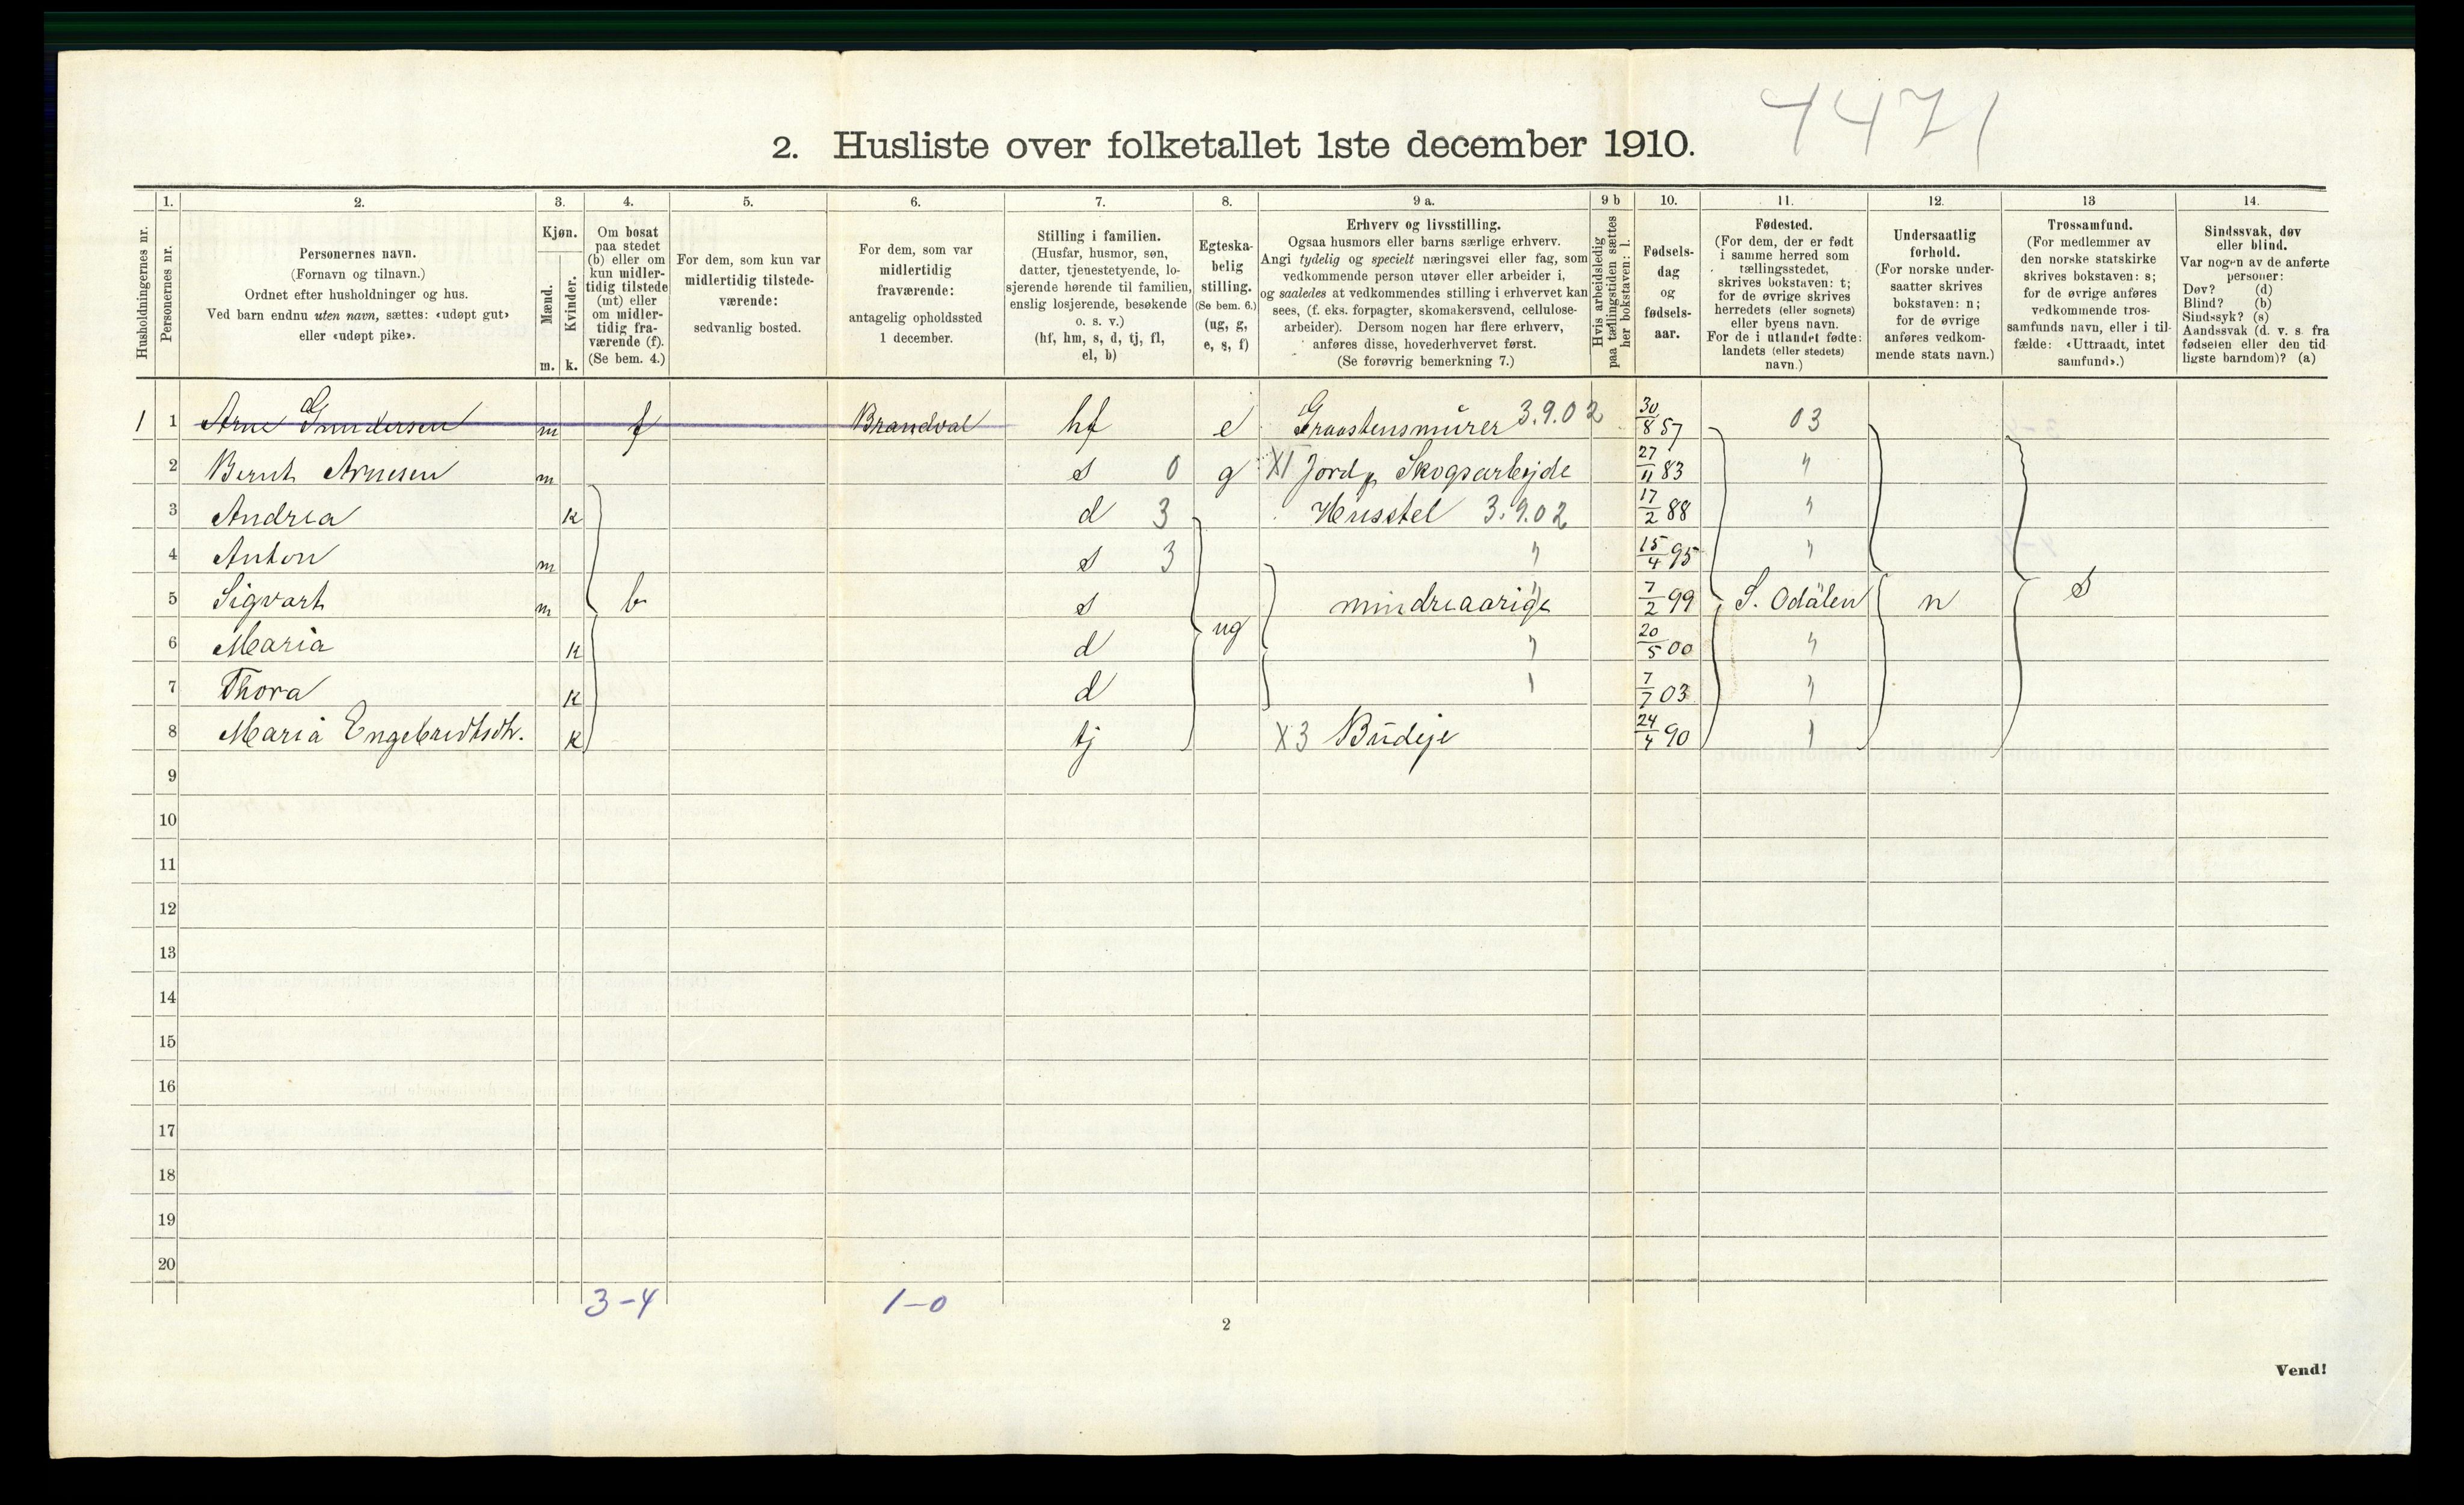 4471
2. Husliste over folketallet 1ste december 1910.
Husholdningernes nr.
1.
Personernes nr.
2.
Personernes navn.
(Fornavn og tilnavn.)
Ordnet efter husholdninger og hus.
Ved barn endnu uten navn, sættes: «udøpt gut»
eller «udøpt pike».
3.
Kjøn.
Mænd.
Kvinder.
m. k.
4.
Om bosat
paa stedet
(b) eller om
kun midler-
tidig tilstede
(mt) eller
om midler-
tidig fra-
værende (f).
(Se bem. 4.)
5.
For dem, som kun var
midlertidig tilstede-
værende:
sedvanlig bosted.
6.
For dem, som var
midlertidig
fraværende:
antagelig opholdssted
1 december.
7.
Stilling i familien.
(Husfar, husmor, søn,
datter, tjenestetyende, lo-
sjerende hørende til familien,
enslig losjerende, besøkende
o. s. v.)
(hf, hm, s, d, tj, fl,
el, b)
8.
Egteska-
belig
stilling.
(Se bem. 6.)
(ug, g,
e, s, f)
9 a.
Erhverv og livsstilling.
Ogsaa husmors eller barns særlige erhverv.
Angi tydelig og specielt næringsvei eller fag, som
vedkommende person utøver eller arbeider i,
og saaledes at vedkommendes stilling i erhvervet kan
sees, (f. eks. forpagter, skomakersvend, cellulose-
arbeider). Dersom nogen har flere erhverv,
anføres disse, hovederhvervet først.
(Se forøvrig bemerkning 7.)
9 b
Hvis arbeidsledig
paa tællingstiden sættes
her bokstaven: l.
10.
Fødsels-
dag
og
fødsels-
aar.
11.
Fødested.
(For dem, der er født
i samme herred som
tællingsstedet,
skrives bokstaven: t;
for de øvrige skrives
herredets (eller sognets)
eller byens navn.
For de i utlandet fødte:
landets (eller stedets)
navn.)
12.
Undersaatlig
forhold.
(For norske under-
saatter skrives
bokstaven: n;
for de øvrige
anføres vedkom-
mende stats navn.)
13
Trossamfund.
(For medlemmer av
den norske statskirke
skrives bokstaven: s;
for de øvrige anføres
vedkommende tros-
samfunds navn, eller i til-
fælde: «Uttraadt, intet
samfund».)
14.
Sindssvak, døv
eller blind.
Var nogen av de anførte
personer:
Døv? (d)
Blind? (b)
Sindssyk? (s)
Aandssvak (d. v. s. fra
fødselen eller den tid-
ligste barndom)? (a)
1 1 Arne Gundersen m f Brandval hf e Graastensmürer 3.9.02 30/8 57 03
2 Bernt Arnesen m s 0 g X1 Jord & Skogsarbejde 27/11 83 "
3 Andrea k d 3 Husstel 3.9.02 17/2 88 "
4 Anton m s 3 " 15/4 95 "
5 Sigvart m b s mindreaarige 7/2 99 S. Odålen n s
6 Maria k d ug " 20/5 00 "
7 Thora k d " 7/7 03 "
8 Maria Engebredtsdt. k tj X3 Büdeje 24/4 90 "
9
10
11
12
13
14
15
16
17
18
19
20
3-4 1-0
2
Vend!